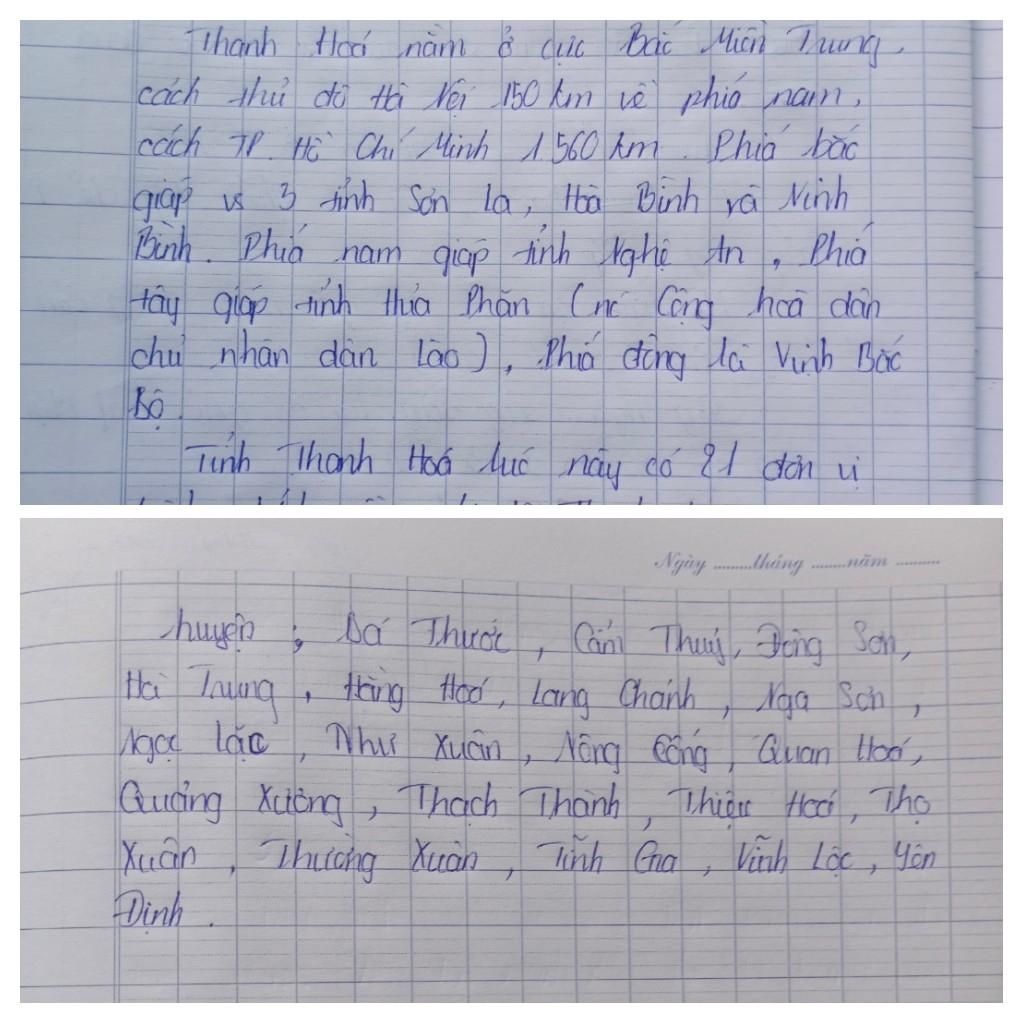 Thanh Hoá nằm ở cực Bắc Miền Trung,
cách thủ đô Hà Nội 150 km về phía nam,
cách TP. Hồ Chí Minh 1.560 km. Phía bắc
giáp vs 3 tỉnh Sơn La, Hoà Bình và Ninh
Bình. Phía nam giáp tỉnh Nghệ An, Phía
tây giáp tỉnh Hủa Phăn (nc Cộng hoà dân
chủ nhân dân Lào), Phía đông là Vịnh Bắc
Bộ.
Tỉnh Thanh Hoá lúc này có 21 đơn vị
Ngày .........tháng ........năm ..........
huyện : Bá Thước, Cẩm Thuỷ, Đông Sơn,
Hà Trung, Hoằng Hoá, Lang Chánh, Nga Sơn,
Ngọc Lặc, Như Xuân, Nông Cống, Quan Hoá,
Quảng Xương, Thạch Thành, Thiệu Hoá, Thọ
Xuân, Thường Xuân, Tĩnh Gia, Vĩnh Lộc, Yên
Định.